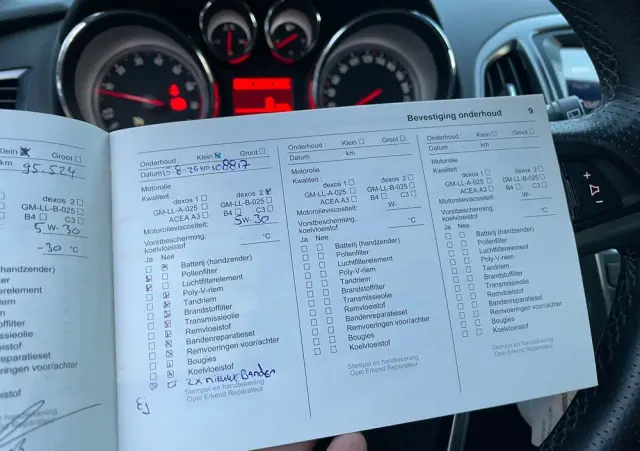 Bevestiging onderhoud 9
Groot
km 95.524
dexos 2
GM-LL-B-025
C3
5W-30
-30 °C
ndzender)
erelement
filter
ieolie
of
eparatieset
eringen voor/achter
stof
Onderhoud : Klein Groot
Datum km 108817
Motorolie
Kwaliteit : dexos 1 dexos 2
GM-LL-A-025 GM-LL-B-025
ACEA A3 B4 C3
Motorolieviscositeit: 5W-30
Vorstbescherming, °C
koelvloeistof
Ja Nee
Batterij (handzender)
Pollenfilter
Luchtfilterelement
Poly-V-riem
Tandriem
Brandstoffilter
Transmissieolie
Remvloeistof
Bandenreparatieset
Remvoeringen voor/achter
Bougies
Koelvloeistof
2x nieuwe Banden
Stempel en handtekening
Opel Erkend Reparateur
Onderhoud : Klein Groot
Datum km
Motorolie
Kwaliteit : dexos 1 dexos 2
GM-LL-A-025 GM-LL-B-025
ACEA A3 B4 C3
Motorolieviscositeit: W-
Vorstbescherming, °C
koelvloeistof
Ja Nee
Batterij (handzender)
Pollenfilter
Luchtfilterelement
Poly-V-riem
Tandriem
Brandstoffilter
Transmissieolie
Remvloeistof
Bandenreparatieset
Remvoeringen voor/achter
Bougies
Koelvloeistof
Stempel en handtekening
Opel Erkend Reparateur
Onderhoud : Klein Groot
Datum km
Motorolie
Kwaliteit : dexos 1 dexos 2
GM-LL-A-025 GM-LL-B-025
ACEA A3 B4 C3
Motorolieviscositeit: W-
Vorstbescherming, °C
koelvloeistof
Ja Nee
Batterij (handzender)
Pollenfilter
Luchtfilterelement
Poly-V-riem
Tandriem
Brandstoffilter
Transmissieolie
Remvloeistof
Bandenreparatieset
Remvoeringen voor/achter
Bougies
Koelvloeistof
Stempel en handtekening
Opel Erkend Reparateur